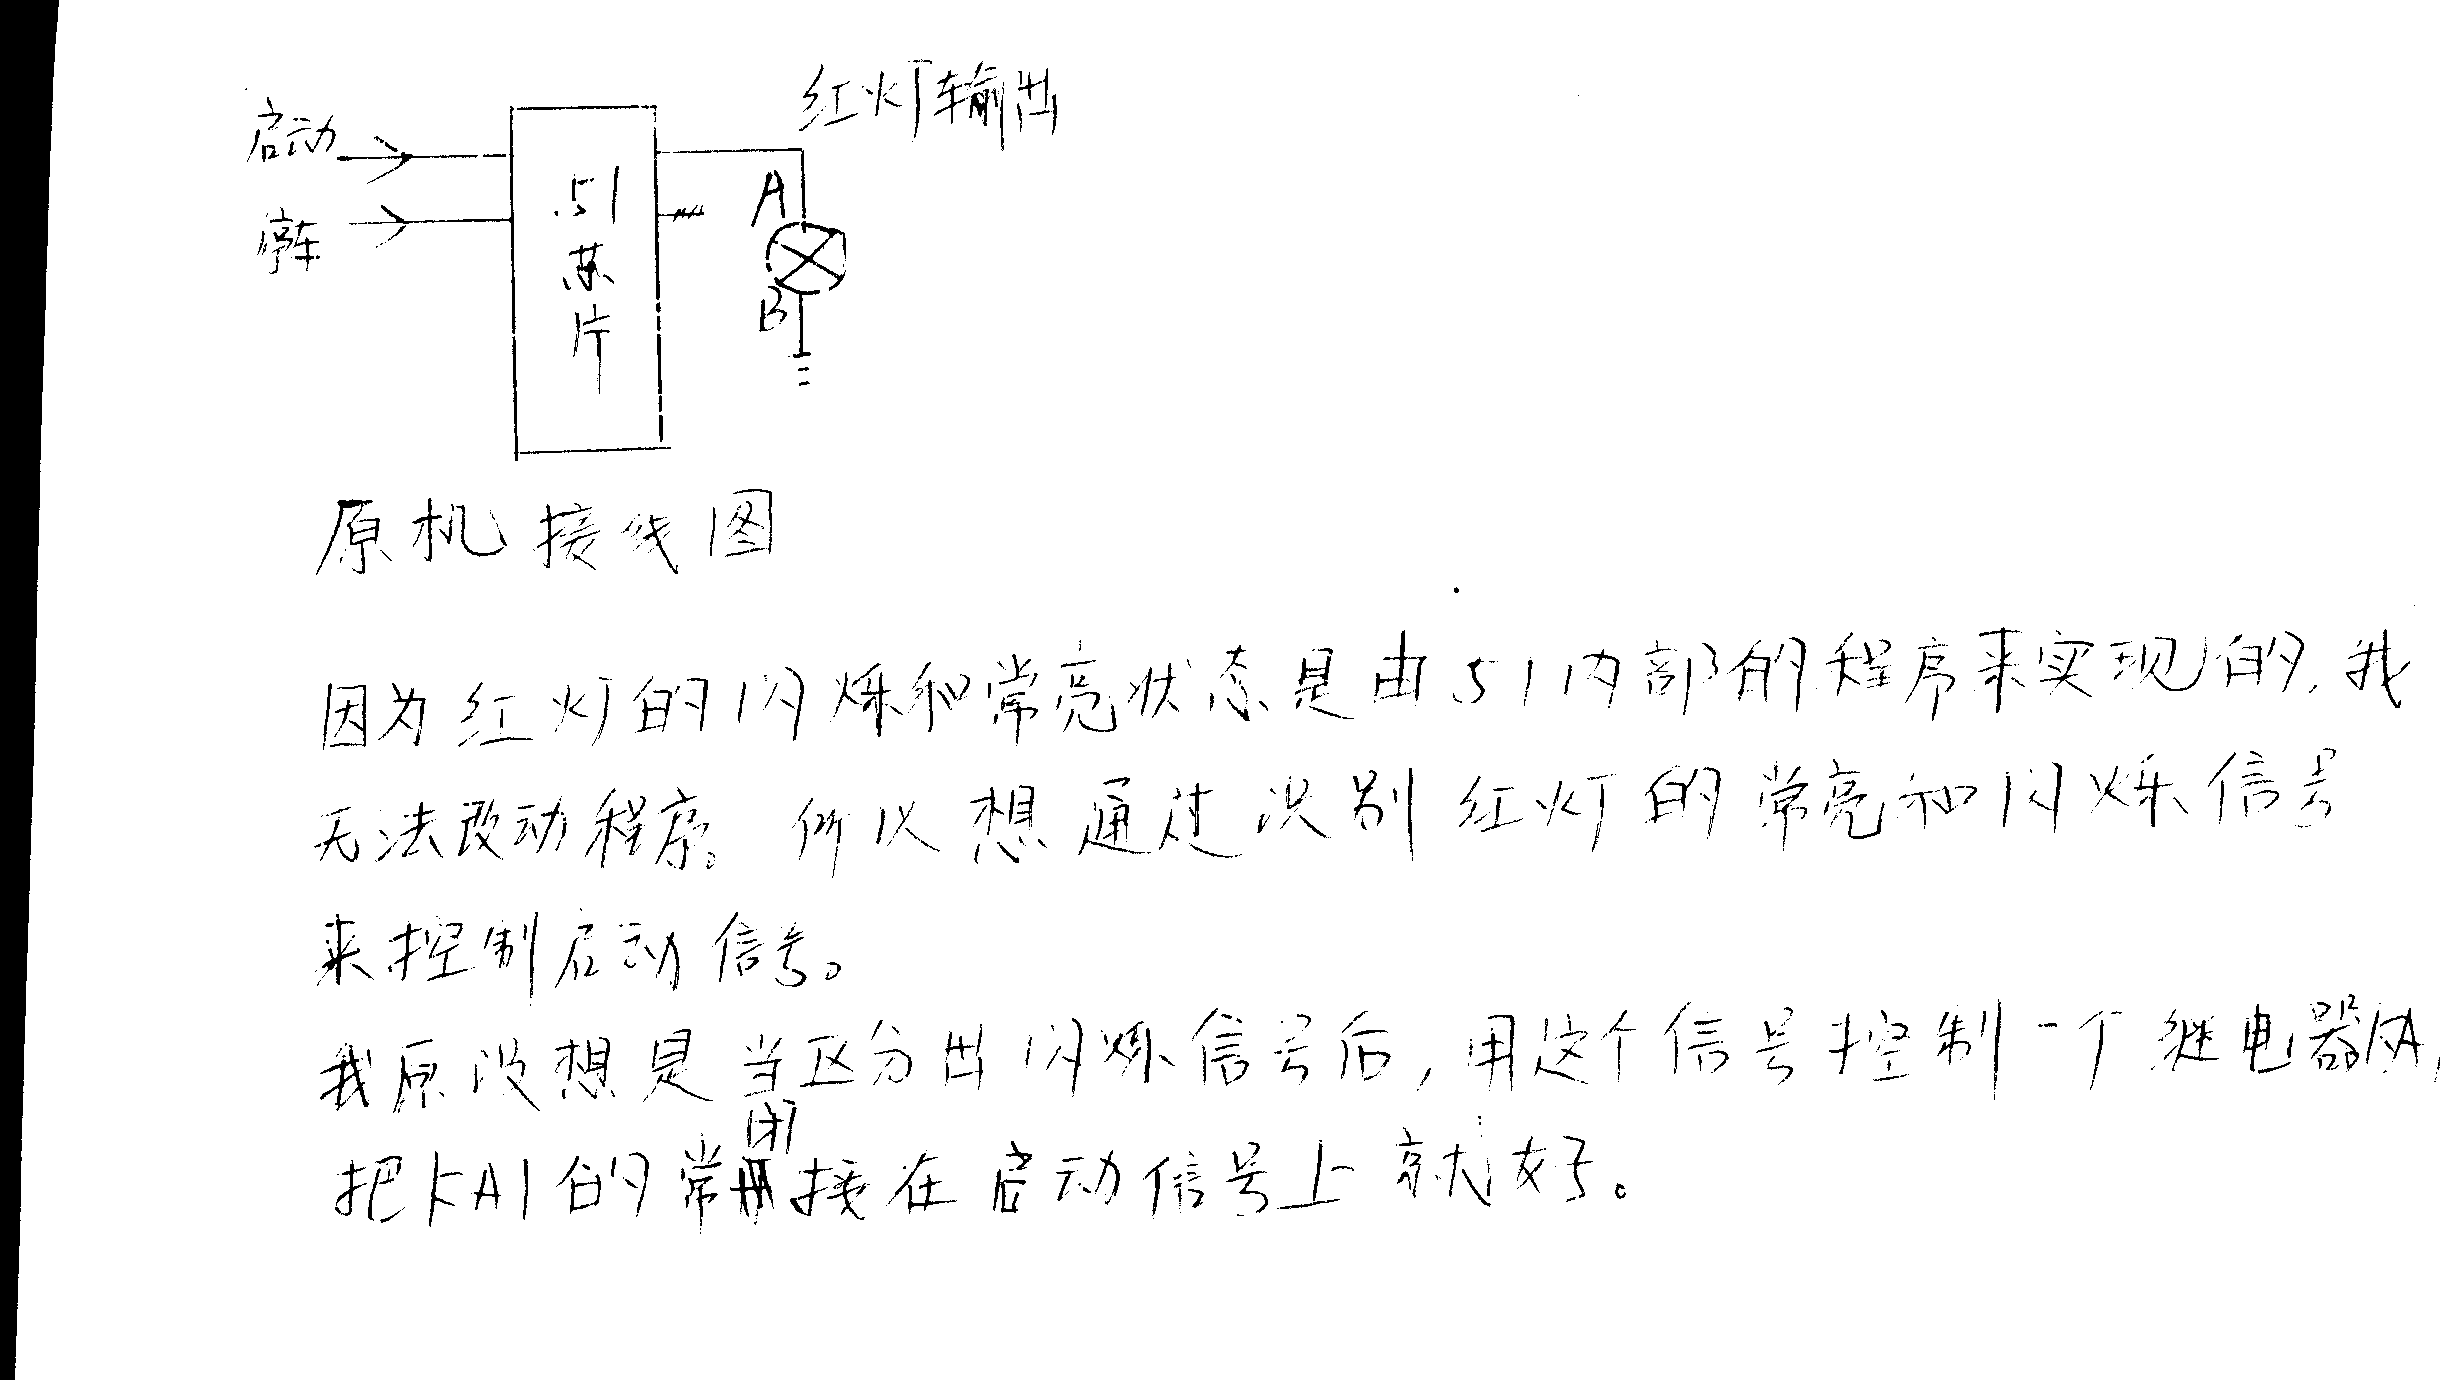 红灯输出
启动
停车
51
芯
片
A
B
原机接线图
因为红灯的闪烁和常亮状态是由51内部的程序来实现的,我
无法改动程序。所以想通过识别红灯的常亮和闪烁信号
来控制启动信号。
我原设想是当区分出闪烁信号后,用这个信号控制一个继电器KA,
闭
把KA1的常接在启动信号上就好。